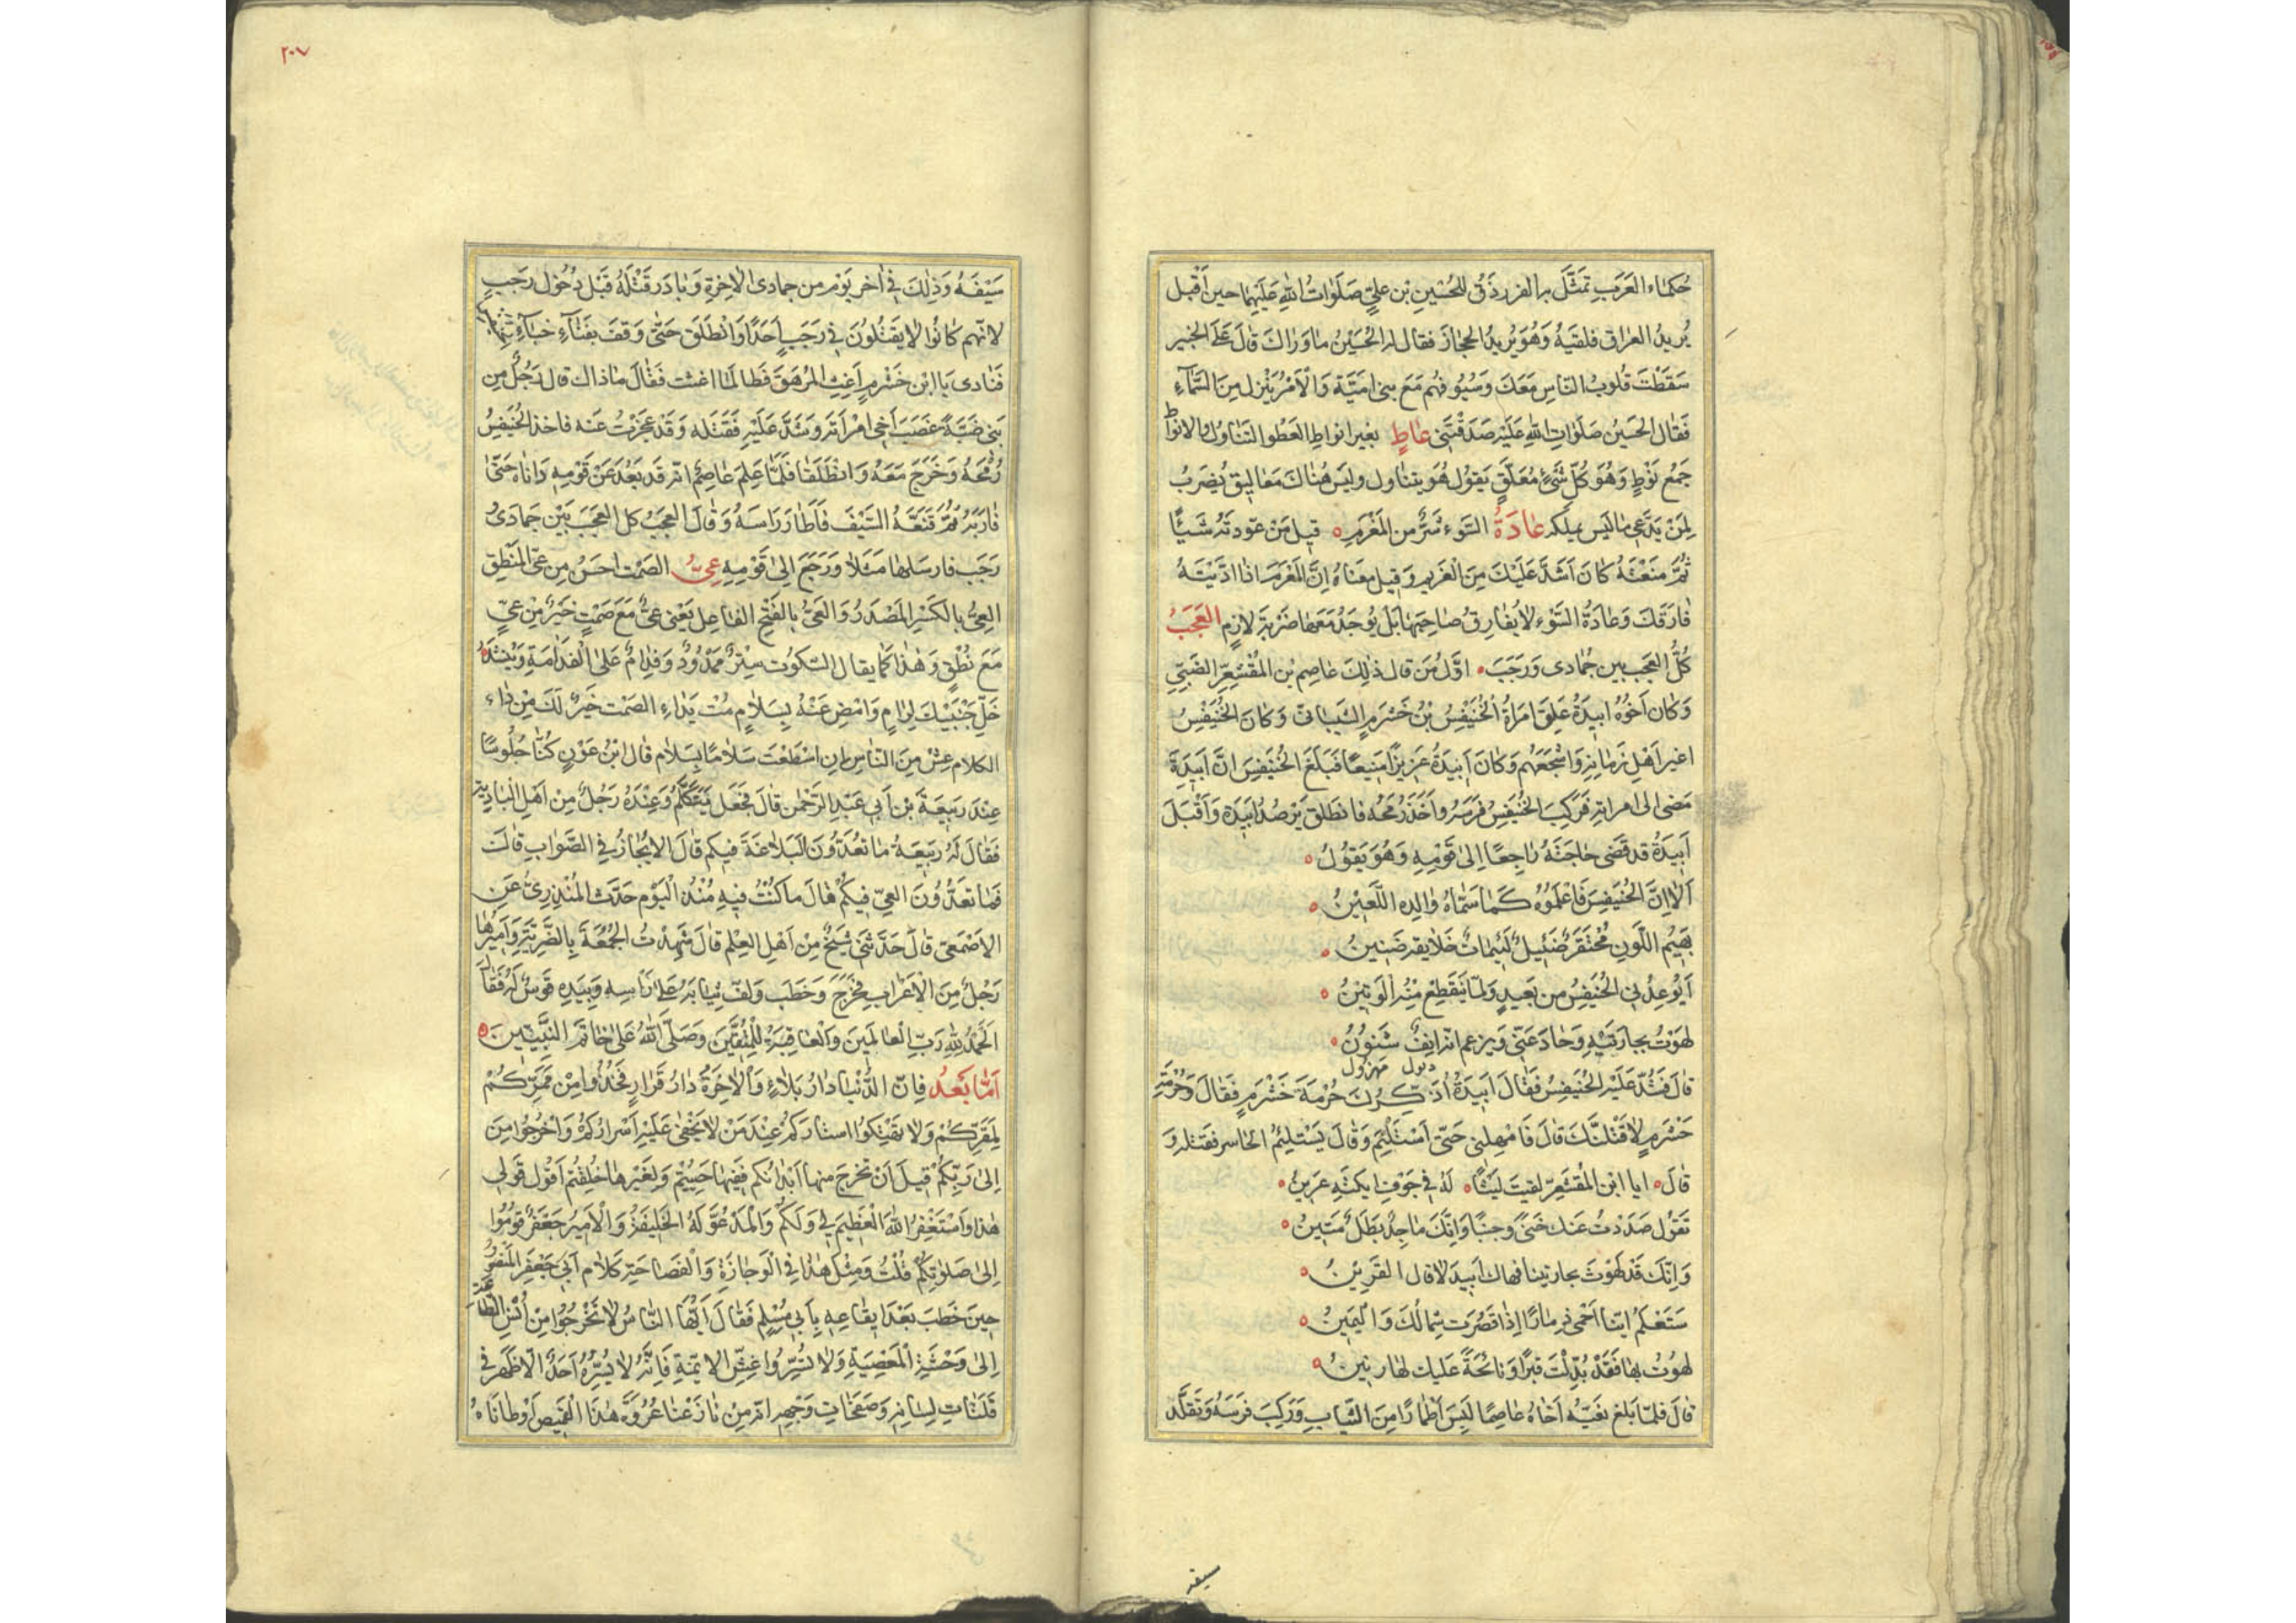 حُكَمَاء العَرَبِ تَمَثَّلَ به الفرزدَقُ للحُسَينِ بْنِ عليٍّ صَلَوَاتُ اللهِ عَلَيهِمَا حين اَقْبل
يُريدُ العِرَاق فلقيَهُ وَهُوَ يُريدُ الحجازَ فقال له الحُسَيْنُ ما وَرَاكَ قَالَ عَلَى الخبير
سَقَطْتَ قُلوبُ النّاسِ مَعَكَ وَسُيُوفهُم مَعَ بنى اميَّة وَالْاَمْرُ يَنْزِل مِنَ السَّمَآءِ
فَقَال الحسَين صَلَواتِ اللهِ عَلَيْه صَدَقْتَنى عَاطٍ بغير انواطٍ العَطْوا التناول والانواط
جَمْعُ نَوْطٍ وَهُوَ كُلّ شَىْءٍ مُعَلَّقٍ يَقولُ هُوَ يتناول وليسَ هُنَاكَ مَعَاليق يُضرَبُ
لِمَنْ يَدَّعى مَا ليَس يملكه عَادَةُ السَّوء شَرٌّ من المَغْرَمِ ٥ قيل مَنْ عَوّدته شَيْئًا
ثُمَّ مَنَعْتَهُ كانَ اَشَدَّ عَلَيْكَ مِنَ الغَريم وَقيل معنَاهُ اِنَّ المَغْرَمَ اذا ادّيْتَهُ
فَارَقَكَ وَعَادَةُ السَّوْءِ لَا يُفَارِقُ صَاحِبَهَا بَلْ يُوجَدُ مَعَهَا ضَرْبَة لازِمٍ العَجَبُ
كُلُّ العجَب بين جُمَادى وَرَجَبَ ٥ اوّل مَن قال ذٰلِكَ عَاصِم بن المُقْشَعِرّ الضَبِّيّ
وَكَان اَخُوهُ اَبيدَةُ عَلِقَ امرَاةُ الخُنَيْفِسُ بْنُ خَشْرَمٍ الشَّيبانىّ وَكَانَ الخُنَيْفِسُ
اغير اَهْلِ زَمَانِهِ وَاَشْجَعَهُم وَكَانَ اَبيدَةُ عَزيزًا مَنِيعًا فَبَلَغَ الخُنَيفِسَ انَّ اَبِيدَةَ
مَضى الى امراتِهِ فَرَكِبَ الخُنَيفِسُ فرَسَهُ واَخَذَ رُمحَهُ فانطلق يَرْصُدُ اَبِيَدَة وَاَقْبَلَ
اَبِيَدَةُ قد قَضى حَاجَتَهُ رَاجِعًا اِلى قَوْمِهِ وَهُوَ يَقوُلُ ٥
اَلَا اِنَّ الخُنَيفِسَ فَاعْلَمُوُه كَمَا سَمَّاهُ وَالِدِه اللَّعينُ ٥
بَهيمُ اللَّونِ مُحْتَقَرٌ ضَئيلٌ لَئيمَاتٌ خَلَايقه ضَنين ٥
اَيُوعِدُنى الخُنَيفِسُ من بَعيدٍ وَلمَّا يَنقَطِعْ مِنْهُ الوَتينُ ٥
لَهَوْتُ بجارَتَيهِ وَحَادَ عَنّى وَيزعم انّه انِفٌ شَنونُ ٥
مهزول
قَالَ فشَدّ عَلَيْهِ الخُنَيفِسُ فَقالَ اَبيدَةُ اُذَكِّرُكَ حُرْمَةَ خَشْرَمٍ فَقَالَ وَحُرمَةِ
خَشْرَمٍ لَاَقْتلَنَّكَ قَالَ فَامْهِلْنى حَتّى اَسْتَلْئِمَ وَقَالَ يَسْتَلئمُ الحَاسر فقتله وَ
قَالَ ٥ ايا ابن المُقشَعِرّ لقيتَ ليثًا ٥ لَهُ فى جَوْفِ ايكَتِهِ عَرِينُ ٥
تَقوُل صَدَدْتُ عنك خَنىً وجبنًا وَاِنَّكَ مَاجِدٌ بَطَلٌ مَتينُ ٥
وَاِنّكَ قَدْ لهَوْتَ بجارتينا فهاك اَبيدَ لاقاك القَرينُ ٥
سَتَعْلَمُ ايّنا اَحْمى ذِمَارًا اِذَا قَصُرَت شِمَالكَ وَاليَمِينُ ٥
لهوْتُ بها فقَدْ بُدِّلْتَ قبرًا وَنَائحَةً عَليك لها رنينُ ٥
قالَ فلمّا بلَغ نَعيّه اَخَاهُ عاصِمًا لَبِسَ اَطْمَارًا مِنَ الثّيابِ وَرَكِبَ فرَسَهُ وَتَقَلَّد
سيفه
٢٠٧
سَيْفَهُ وَذٰلِكَ فى اٰخر يَوْم من جمادى الاٰخِرَةِ وَبَادَرَ قَتْلَهُ قَبْلَ دُخُول رجَبٍ
لانّهم كانُوا لا يَقتُلُونَ فى رَجَبٍ اَحَدًا وَانْطَلَقَ حَتّى وَقَفَ بفنَآءِ خبَآءِ
فَنَادى يَا ابن خَشْرمٍ اَغِثِ المُرهَقَ فَطَالَمَا اغثت فَقَالَ مَاذاك قال رَجُلٌ مِن
بَنى ضَبَّة غصَبَ اَخى امْرَاَته وشَدَّ عَلَيْهِ فَقَتله وَقَد عجَزْتُ عَنه فاخذ الخُنَيفِسُ
رُمْحَهُ وَخَرَجَ مَعَهُ وَانطَلَقَا فَلَمّا عَلِمَ عَاصِمٌ انّه قد بَعُدَ عَنْ قَوْمِهِ دَانَاهُ حَتّى
قَارَبَهُ ثُمَّ قنَّعَهُ السَّيْفَ فَاَطَارَ رَاسَهُ وَقَالَ العَجَبُ كل العَجَبَ بَيْن جمَادَى
رَجَب فارسَلهَا مَثَلًا وَرَجَعَ الى قَوْمِهِ عِىُّ الصّمْت احسَنُ مِن عىّ المَنْطِق
العِىُّ بالكَسْرِ المَصْدَرُ وَالعَىُّ بالفَتْحِ الفاعِل يَعْنى عىٌّ مَعَ صَمْتٍ خَيْرٌ مِنْ عىٍّ
مَعَ نُطْقٍ وَهٰذا كما يقال السّكوت سِتْرٌ مَمْدُودٌ وَفدَامٌ عَلى الفدَامَةِ وَيُنْشَدُ
خَلِّ جَنْبَيْكَ لِرَامٍ وَامْضِ عَنْهُ بِسَلَامٍ مُتْ بِدَاءِ الصّمْت خَيرٌ لَكَ مِنْ دَاء
الكلام عِشْ مِنَ النَّاسِ اِنِ اسْطَعْتَ سَلَامًا بِسَلَام قال ابْنُ عَوْنٍ كُنّا جُلُوسًا
عِندَ رَبيعَة بْنِ اَبى عَبْدِ الرّحمٰن قالَ فجعَلَ يَتَكَلَّمُ وَعِنْدَهُ رَجُلٌ مِن اَهْلِ البَادِيَةِ
فَقَالَ لَهُ رَبيعَةُ مَا تعُدّونَ البَلَاغةَ فيكم قالَ الايجَازُ فى الصَّوَاب قالَ
فَمَا تعَدُّونَ العىّ فيكُمْ قالَ ما كنْتَ فيهِ مُنْذُ اليَوْم حَدَّثَ المُنْذِرىُّ عَنِ
الاَصْمَعى قالَ حَدَّثَنى شَيخٌ مِنْ اَهْلِ العِلْم قالَ شَهِدْتُ الجُمُعَةَ بِالضَّرِيَّة وَاَمِيرُهَا
رَجُلٌ مِنَ الْاَعْرَابِ فخَرَجَ وَخَطَب وَلَفّ ثيابَهُ عَلى رَاسِهِ وَبِيَدِهِ قَوسٌ لَهُ فقَالَ
اَلحَمْدُ للهِ رَبِّ العَالَمينَ وَالعَاقِبَةُ للِمُتَّقينَ وَصَلَّى اللهُ عَلى خَاتَم النَّبِيّينَ ٥
اَمَّا بَعدُ فاِنّ الدُّنْيَا دَارُ بَلاءٍ وَالاٰخِرَةُ دَارُ قَرَارٍ فخُذُوا مِنْ مَمَرّكُمْ
لِمَقَرّكُمْ وَلا تَهْتِكوا استارَكم عِنْدَ مَنْ لا يَخْفى عَلَيْهِ اَسْرَارُكُمْ وَاَخْرِجُوا مِنَ
اِلى رَبِّكُمْ قَبْلَ اَنْ تَخرجَ منها اَبْدَانكم فَفيهَا حَيِيتُمْ وَلِغَيْرِها خُلِقْتُم اَقُول قَولى
هٰذا وَاَسْتَغْفِرُ اللهَ العَظِيمَ لِى وَلَكمْ وَالمَدْعُوّ لَهُ الخَليفَةُ وَالْاَميرُ جَعْفَرٌ قومُوا
اِلى صَلٰوتِكُمْ قُلْتُ وَمِثْلُ هٰذَا فِى الوجَازَةِ وَالفَصَاحَة كَلَام اَبى جَعْفَرِ المَنْصُورِ
حِينَ خَطَبَ بَعْدَ ايقَاعِهِ بِاَبى مُسْلِمٍ فَقَالَ اَيُّهَا النَّاسُ لا تَخْرُجُوا مِنْ اُنْسِ الطَّاعَة
اِلى وَحْشَةِ المَعْصِيَةِ وَلا تُسِرُّوا غشَّ الايمّةِ فَاِنَّهُ لا يُسِرُّهُ اَحَدٌ اِلّا ظَهَرَ فى
فَلَتَاتِ لِسَانِهِ وَصَفَحَاتِ وَجْهِهِ اِنّه مِنْ نَازَعَنَا عُرْوَةَ هٰذَا القَميصِ اَوْطَانَاهُ